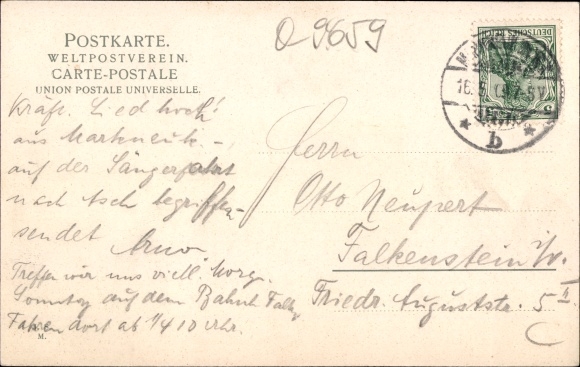 O 9659
POSTKARTE.
WELTPOSTVEREIN.
CARTE-POSTALE
UNION POSTALE UNIVERSELLE.
DEUTSCHES REICH
b
Kräft. Lied hoch!
aus Markneuk-,
auf der Sängerfahrt
nach Asch begriffen
sendet
Arno
Treffen wir uns viell. Morg.
Sonntag auf dem Bahnh Falk.
Fahren dort ab 1/4 10 Uhr.
M.
Herrn
Otto Neupert
Falkenstein i/V.
Friedr. Auguststr. 5 II